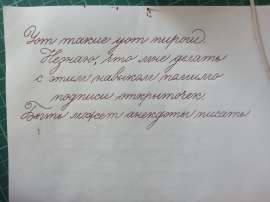 Уот такие уот пироги.
Незнаю, что мне делать
с этим навыком помимо
подписи открыточек
Быть может анекдоты писать